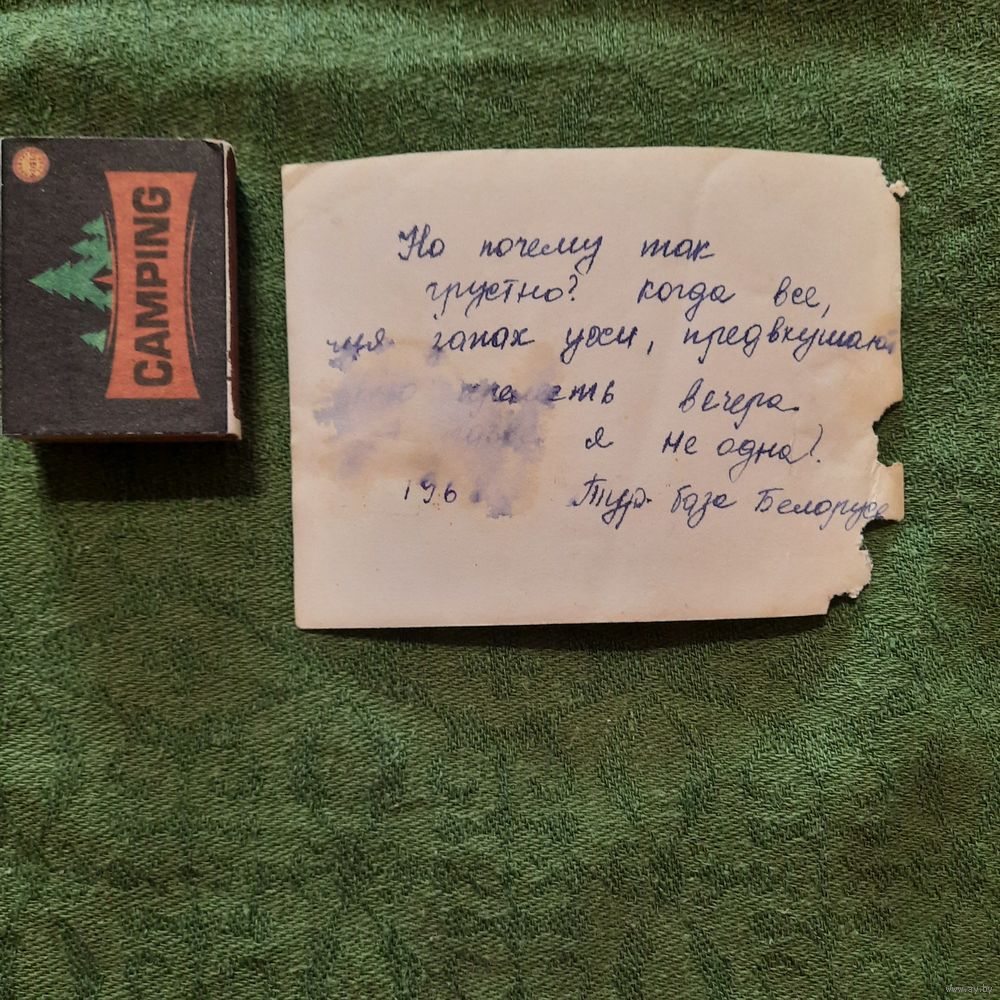 CAMPING
Но почему так
грустно? когда все,
чуя запах ухи, предвкушают
прелесть вечера.
я не одна?
196
Тур. база Белорусс
www.ay.by